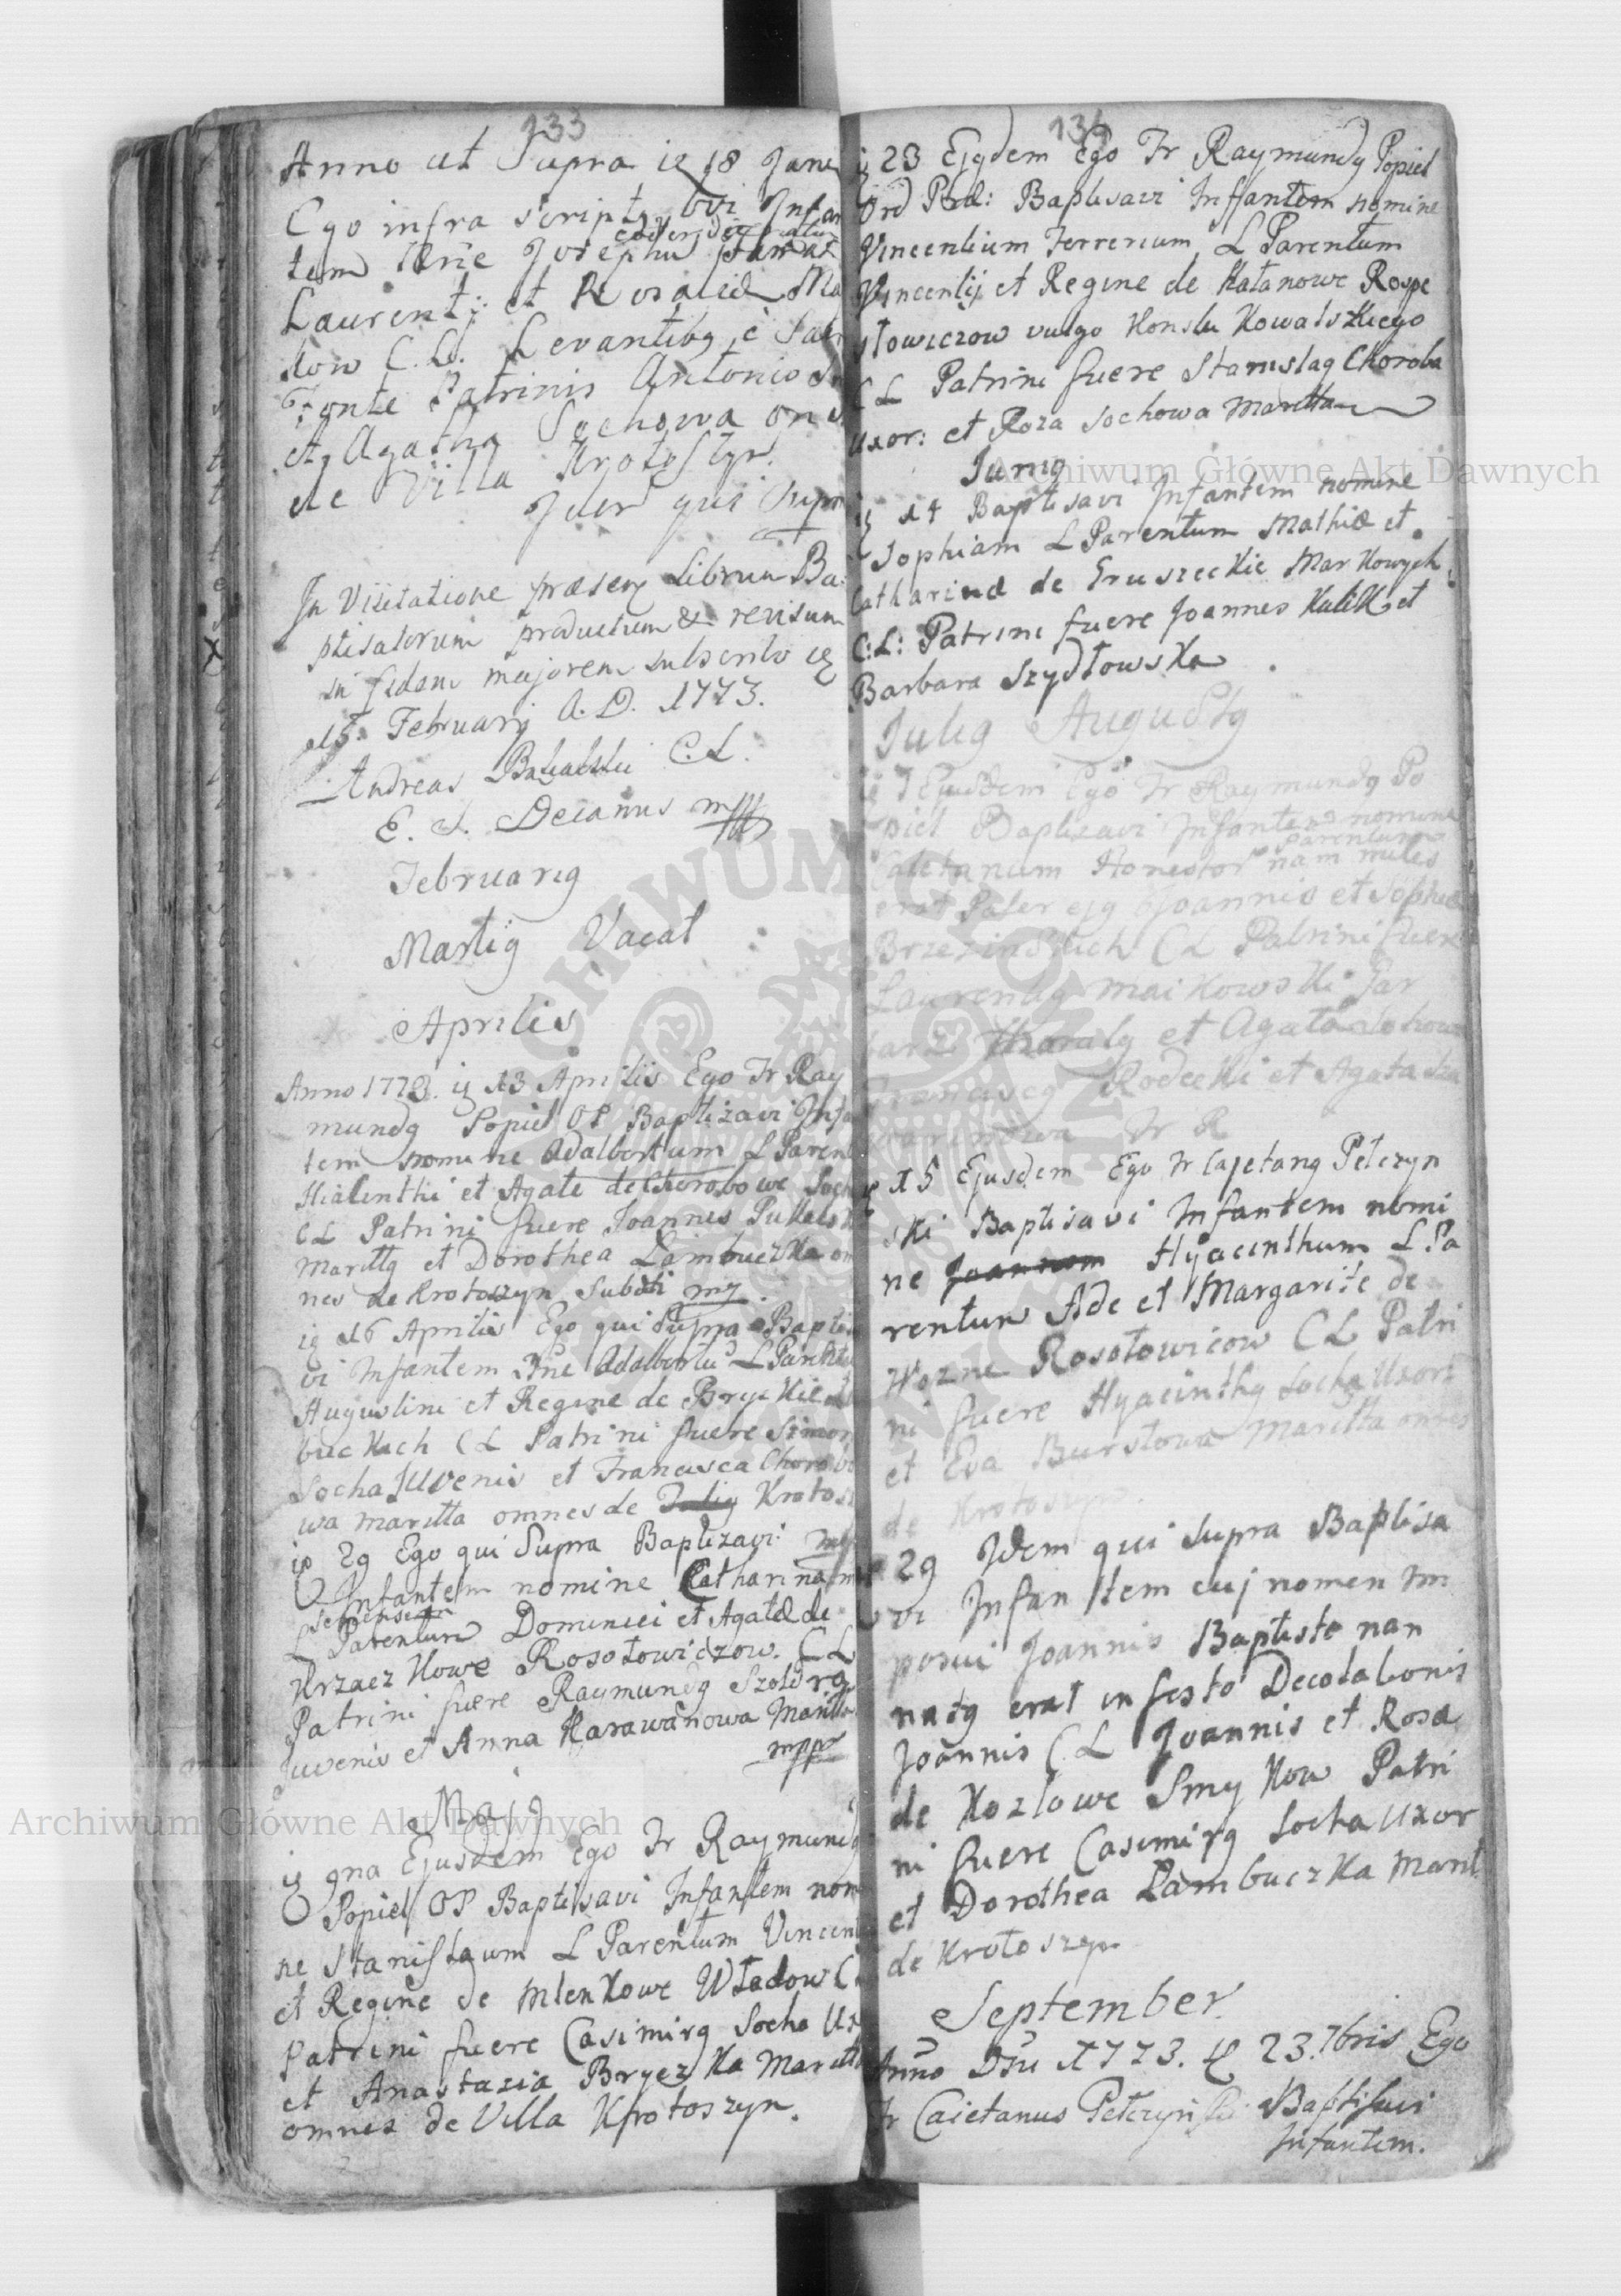 133
Anno ut Supra ie 18 Janu
Ego infra scriptg bvi Infan
eodem die natum
tem Nne Josephu
Laurentj et Rosaliæ Ma
low C. L. Levantibg è Sacr
Fonte Patrinis Antonio
Et Agatha Sochowa omn
de Villa Krotoszyn.
Idem qui Supra
In Visitatione præsens Librum Ba
ptisatorum productum & revisum
in fidem majorem subscribo ie
15. Februarij A. D. 1773.
Andreas C. L.
E. S. Decanus mpp
Februarig
Martig Vacat
Aprilis
Anno 1773. ie 13 Aprilis Ego Fr Ray
mundg Popiel OP Baptizavi Infa
tem nomine Adalbertum L Parent
Hialinthi et Agate de Chorobowe Soch
CL Patrini fuere Joannes Pukalsk
Maritg et Dorothea Lambuczka om
nes de Krotoszyn Subditi mp
ie 16 Aprilis Ego qui Supra Baptis
vi Infantem Nne Adalbertu L Parentu
Augustini et Regine de Bryczkie
buckich CL Patrini fuere Simon
Socha Juvenis et Francisca Chorobo
wa maritta omnes de Krotosz
ie 29 Ego qui Supra Baptizavi mp
Infantem nomine Catharinam
Senensem
L Parentum Dominici et Agatæ de
Krzaczkowe Rosołowiczow. C L
Patrini fuere Raymundg Szoldrg
Juvenis et Anna Karawanowa Maritta
mpp
Majg
ie 9na Ejusdem Ego Fr Raymundg
Popiel OP Baptisavi Infantem nomi
ne Stanislaum L Parentum Vincent
et Regine de Mlenkowe Władow C
Patrini fuere Casimirg Socha Ux
et Anastazia Bryczka Maritta
omnes de Villa Krotoszyn.
134
ie 23 Ejgdem Ego Fr Raymundg Popiel
Ord Præd: Baptisavi Inffantem nomine
Vincentium Ferrerium L Parentum
Vincentij et Regine de Katanowe Rospe
słowiczow vulgo Konstu Kowalszkiego
C L Patrini fuere Stanislag Choroba
uxor: et Roza Sochowa Maritta
Junig
ie 14 Baptisavi Infantem nomine
Sophiam L Parentum Mathiæ et
Catharinæ de Gruszeckie Markowych
C: L: Patrini fuere Joannes Kulik et
Barbara Szydłowska
Julig Augustg
ie 7 Ejusdem Ego Fr Raymundg Po
piel Baptizavi Infantem nomine
parentum
Caietanum Honestor nam miles
erat Pater ejg Joannis et Sophiæ
Brzezinskich CL Patrini fuere
Laurentig Maikowski Gar
barz et Agata Sochow
Franciscg Rodecki et Agata
Fr R
ie 15 Ejusdem Ego Fr Cajetang Pełczyn
ski Baptisavi Infantem nomi
ne Joannem Hyacinthum L Pa
rentum Ade et Margarite de
Wozne Rosołowicow CL Patri
ni fuere Hyacinthg Socha Uxor
et Eva Burstowa Maritta omnes
de Krotoszyn.
29 Idem qui Supra Baptisa
vi Infantem cuj nomen im
posui Joannis Baptiste nan
natg erat in festo Decolationis
Joannis C. L Joannis et Rosæ
de Kozlowe Smykow Patri
ni fuere Casimirg Socha Uxor
et Dorothea Lambuczka Marit
de Krotoszyn
September.
Anno Dñi 1773. ie 23. 7bris Ego
Fr Caietanus Pełczynski Baptisavi
Infantem.
Archiwum Główne Akt Dawnych
Archiwum Główne Akt Dawnych